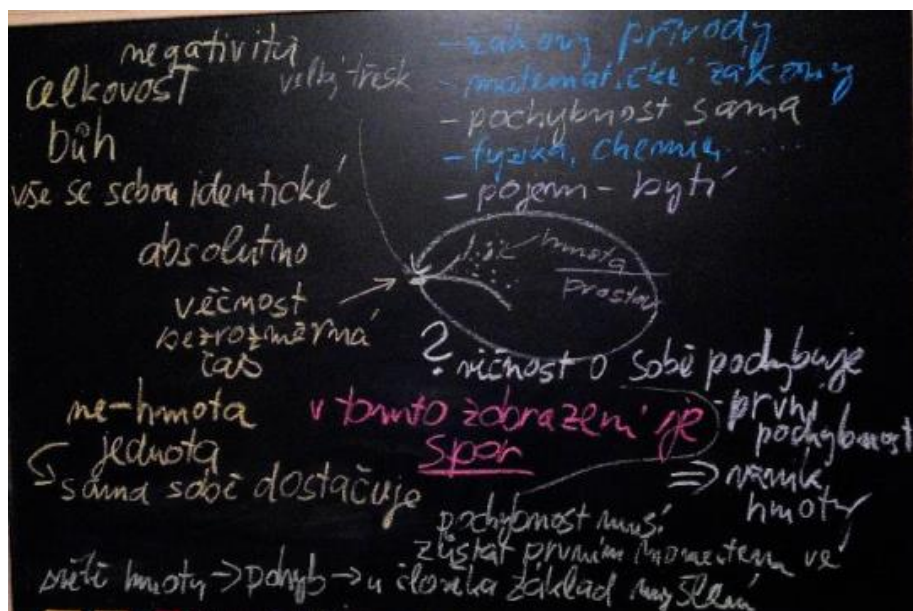 negativita
celkovost
bůh
vše se sebou identické
absolutno
věčnost
bezrozměrná
čas
ne-hmota
jednota
sama sobě dostačuje
velký třesk
- zákony přírody
- matematické zákony
- pochybnost sama
- fyzika, chemie, .....
- pojem - bytí
hmota
prostor
? věčnost o sobě pochybuje
- první
pochybnost
⇒ vznik
hmoty
v tomto zobrazení je
spor
pochybnost musí
zůstat prvním momentem ve
světě hmoty → pohyb → u člověka základ myšlení